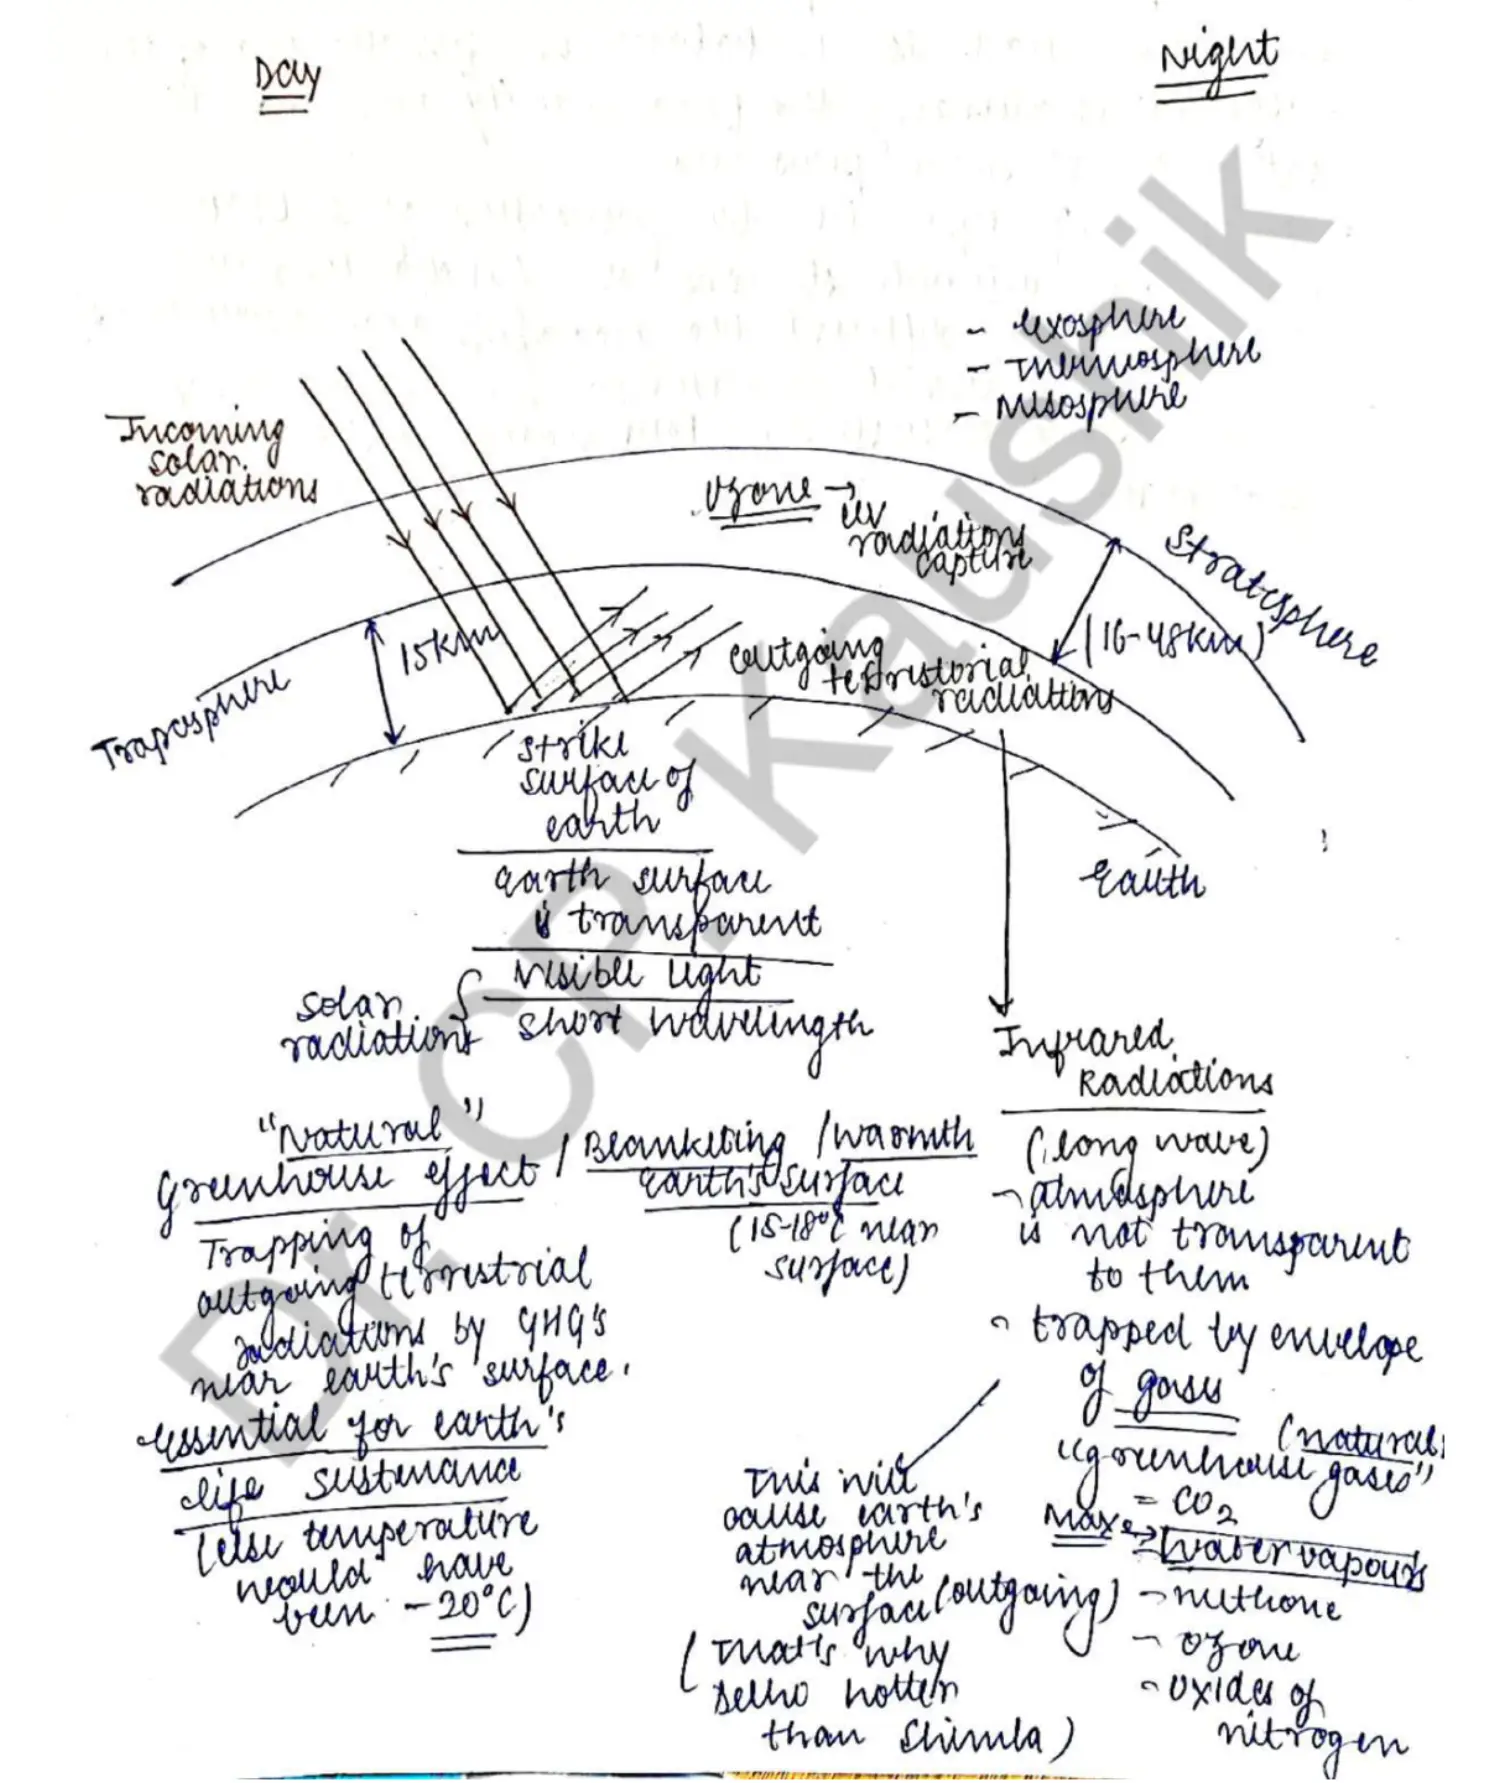 Day
Night
- exosphere
- Thermosphere
- Mesosphere
Incoming
solar
radiations
Ozone →
UV
radiations
capture
Stratosphere
(16-48km)
15km
Traposphere
outgoing
terristorial
radiations
Earth
strike
surface of
earth
earth surface
is transparent
visible light
short wavelength
solar
radiations
Infrared
Radiations
(long wave)
- atmosphere
is not transparent
to them
- trapped by envelope
of gases
(natural
"greenhouse gases"
- CO2
Max →
- water vapours
- methane
- ozone
- oxides of
nitrogen
"Natural"
greenhouse effect / Blanketing / warmth
earth's surface
(15-18°C near
surface)
Trapping of
outgoing terrestrial
radiations by GHG's
near earth's surface.
essential for earth's
life sustenance
(else temperature
would have
been -20°C)
This will
cause earth's
atmosphere
near the
surface (outgoing)
(That's why
Delho hotter
than Shimla)
Dr. CP. Kaushik